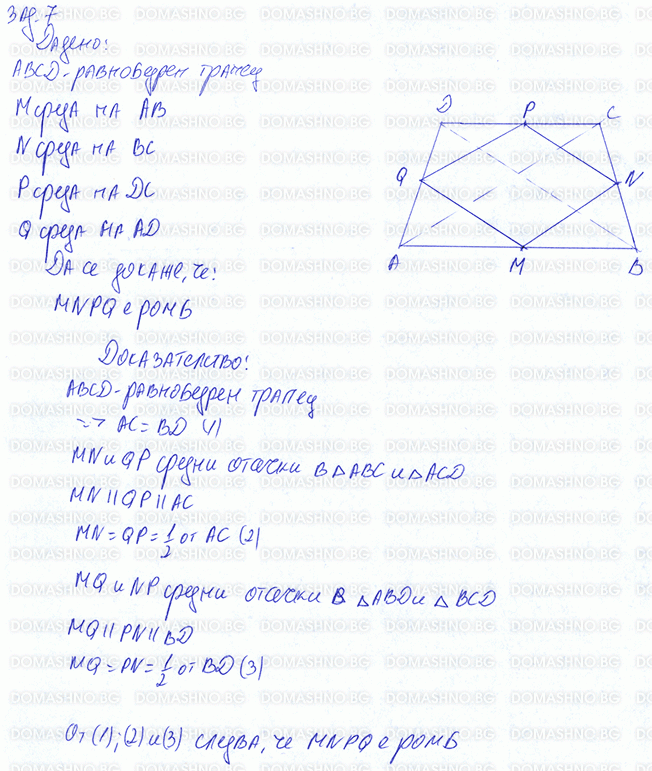 Зад. 7
Дадено:
ABCD - равнобедрен трапец
M среда на AB
N среда на BC
P среда на DC
Q среда на AD
Да се докаже, че:
MNPQ е ромб
D P C
Q N
A M B
Доказателство:
ABCD - равнобедрен трапец
=> AC = BD (1)
MN и QP средни отсечки в △ABC и △ACD
MN || QP || AC
MN = QP = 1/2 от AC (2)
MQ и NP средни отсечки в △ABD и △BCD
MQ || PN || BD
MQ = PN = 1/2 от BD (3)
От (1); (2) и (3) следва, че MNPQ е ромб